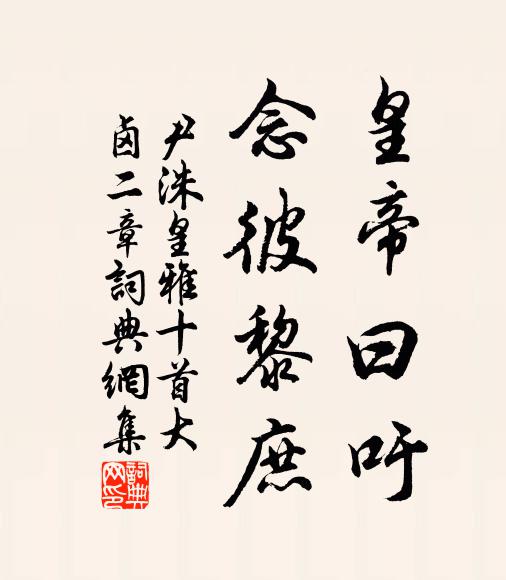 皇帝曰吁
念彼黎庶
尹洙皇雅十首大
鹵二章詞典網集
詞典
网印